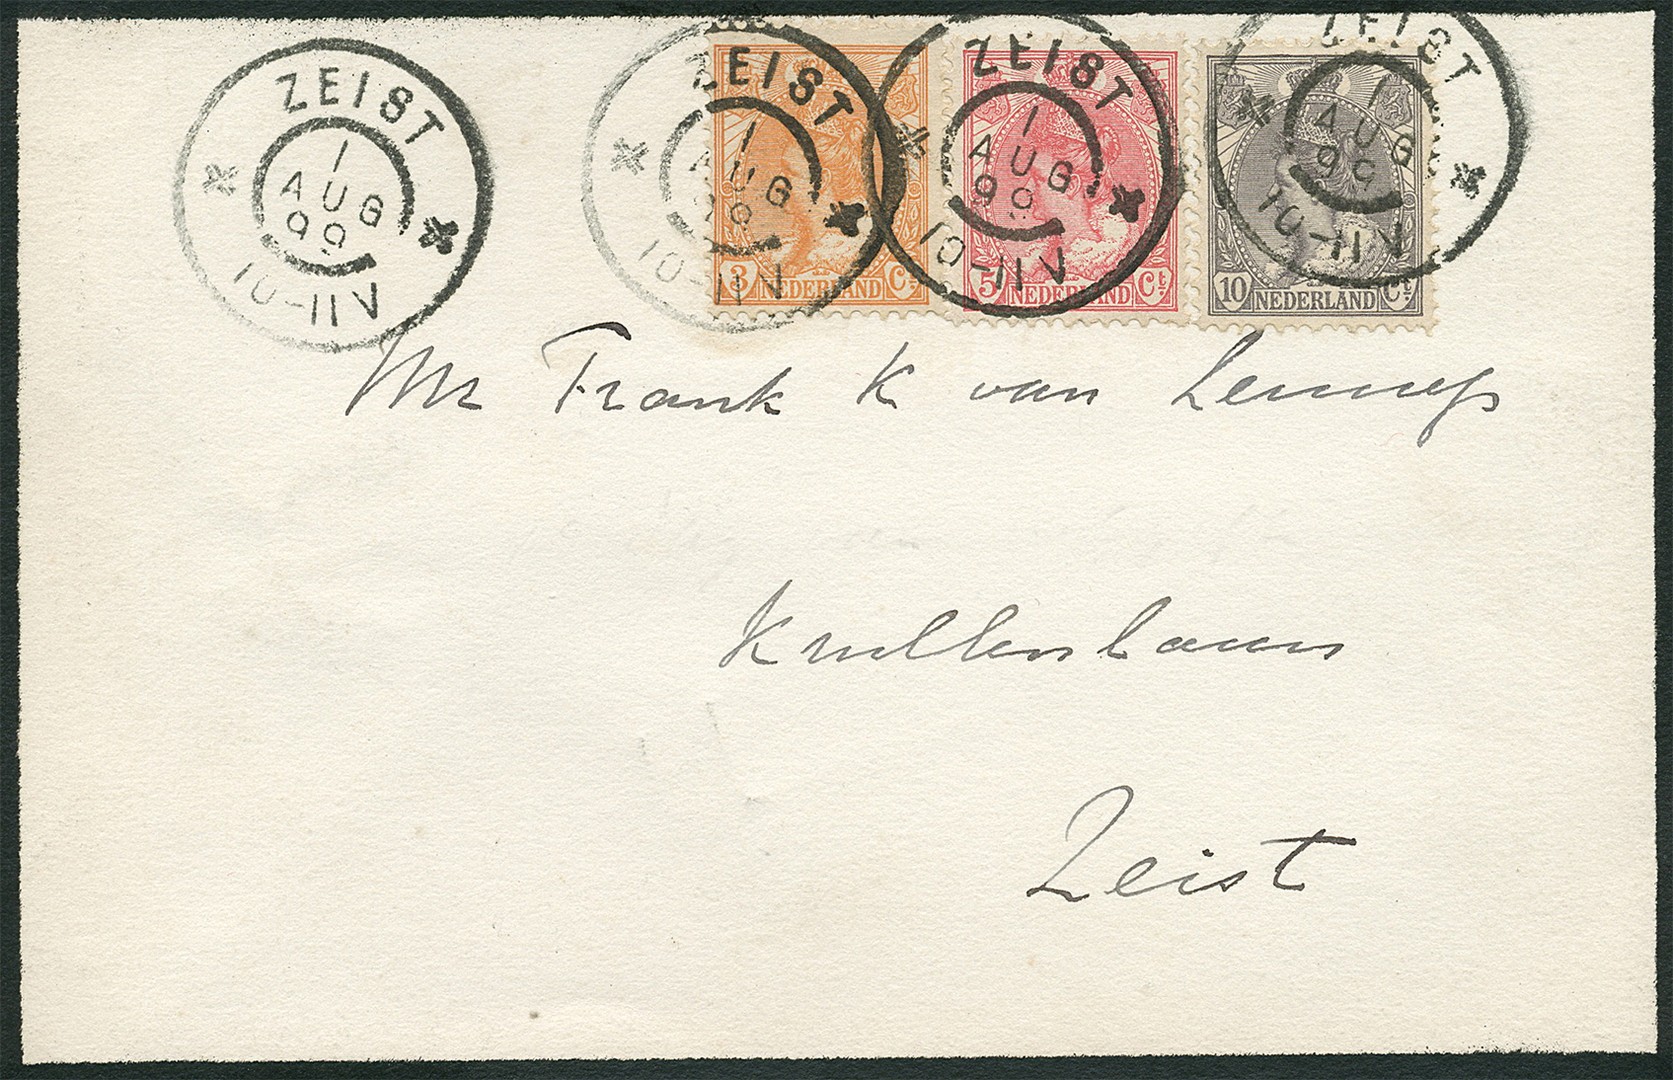 ZEIST
1
AUG
99
10-11V
ZEIST
1
AUG
99
10-11V
ZEIST
1
AUG
99
10-11V
ZEIST
1
AUG
99
10-11V
3 NEDERLAND Ct
5 NEDERLAND Ct
10 NEDERLAND Ct
Mr Frank K van Lennep
Zeist